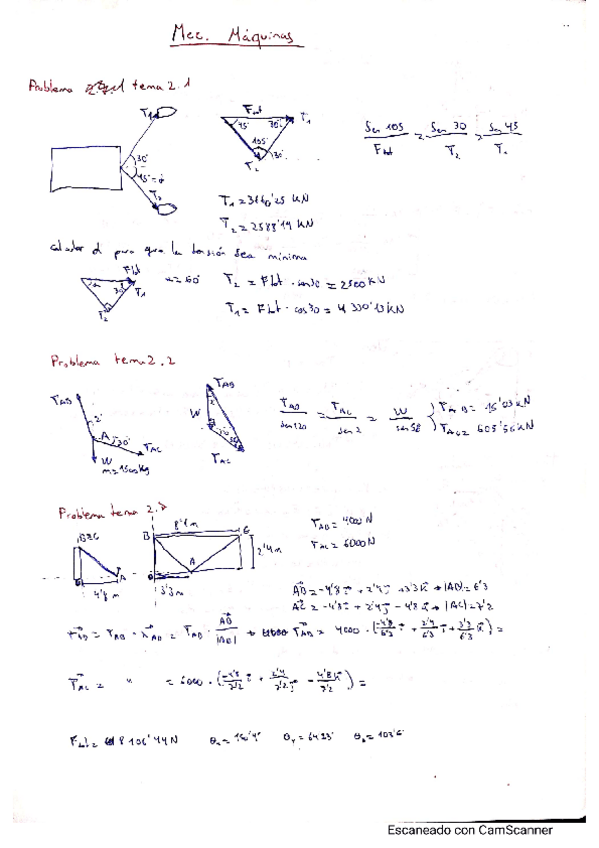 Mec. Máquinas
Problema tema 2.1
T1 Ftot T1
30° 45° 30°
45°=α 105 30°
T2 T2
Sen 105 / Ftot = Sen 30 / T2 = Sen 45 / T1
T2 = 2588'19 KN
calcular α para que la tensión sea mínima
Ftot
α 30° T1
T2
α=60° T2 = Ftot · sen30 = 2500 KN
T1 = Ftot · cos30 = 4330'13 KN
Problema tema 2.2
TAB 2° A 30° TAC
W
m=1500kg
TAB
W
TAC
TAB / sen120 = TAC / sen2 = W / sen58
Problema tema 2.
8'1 m
B C
2'4 m
A
4'8 m 3'3 m
TAB = 4000 N
TAC = 6000 N
AB = -4'8 i + 2'4 j + 3'3 k → |AB| = 6'3
AC = -4'8 i + 2'4 j - 4'8 k → |AC| = 7'2
TAB = TAB · λAB = TAB · AB / |AB| → TAB = 4000 · (-4'8/6'3 i + 2'4/6'3 j + 3'3/6'3 k) =
TAC = " = 6000 · (-4'8/7'2 i + 2'4/7'2 j - 4'8/7'2 k) =
Escaneado con CamScanner